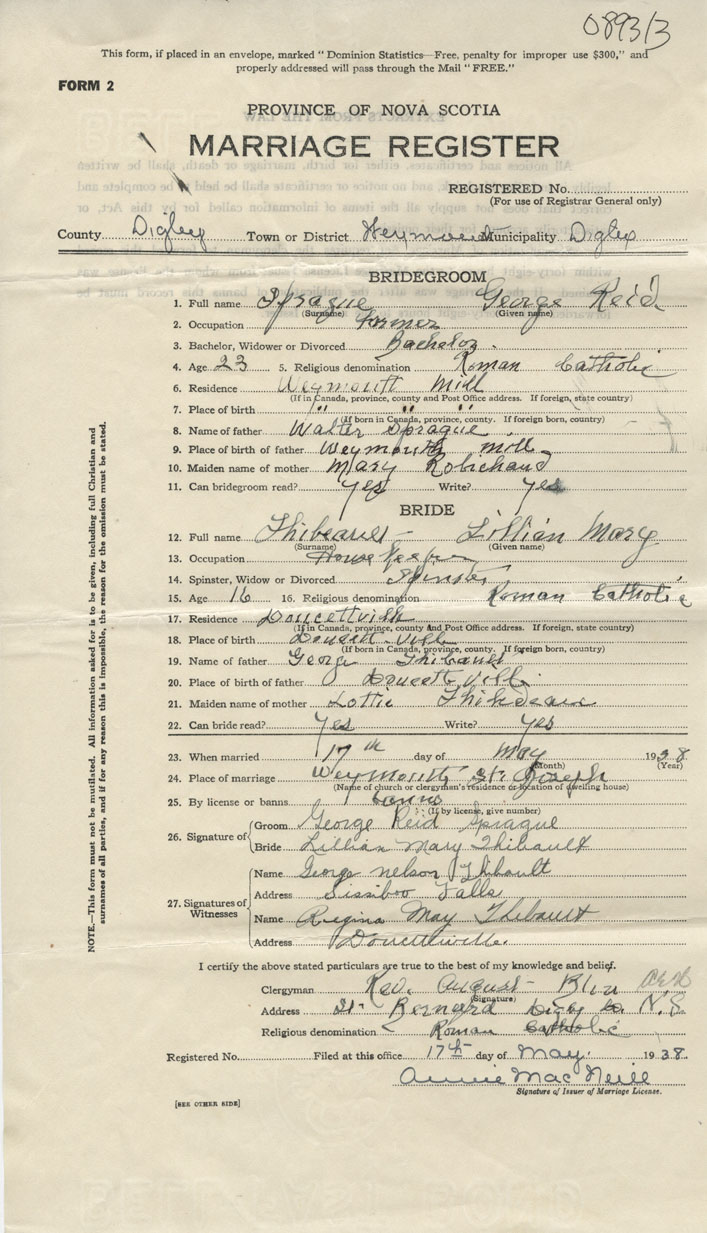 0893/3
This form, if placed in an envelope, marked "Dominion Statistics—Free, penalty for improper use $300," and
properly addressed will pass through the Mail "FREE."
FORM 2
PROVINCE OF NOVA SCOTIA
MARRIAGE REGISTER
REGISTERED No.
(For use of Registrar General only)
County Digby Town or District Weymouth Municipality Digby
BRIDEGROOM
1. Full name Sprague George Reid
(Surname) (Given name)
2. Occupation Farmer
3. Bachelor, Widower or Divorced Bachelor.
4. Age 23 5. Religious denomination Roman Catholic
6. Residence Weymouth Mill
(If in Canada, province, county and Post Office address. If foreign, state country)
7. Place of birth " " "
(If born in Canada, province, county. If foreign born, country)
8. Name of father Walter Sprague
9. Place of birth of father Weymouth Mill
10. Maiden name of mother Mary Robichaud
11. Can bridegroom read? yes Write? yes
BRIDE
12. Full name Thibeault - Lillian Mary
(Surname) (Given name)
13. Occupation House Keeper
14. Spinster, Widow or Divorced Spinster
15. Age 16 16. Religious denomination Roman Catholic
17. Residence Doucettville
(If in Canada, province, county and Post Office address. If foreign, state country)
18. Place of birth Doucett-Vill
(If born in Canada, province, county. If foreign born, country)
19. Name of father George Thibault
20. Place of birth of father Doucett Vill.
21. Maiden name of mother Lottie Thibdeaux
22. Can bride read? Yes Write? Yes
23. When married 17th day of May 1938
(Month) (Year)
24. Place of marriage Weymouth St. Joseph
(Name of church or clergymen's residence or location of dwelling house)
25. By license or banns banns
(If by license, give number)
26. Signature of
Groom George Reid Sprague
Bride Lillian Mary Thibault
27. Signatures of Witnesses
Name George nelson Thibault
Address Sissiboo Falls
Name Regina May Thibault
Address Doucettville.
I certify the above stated particulars are true to the best of my knowledge and belief.
Clergyman Rev. August Blin
(Signature)
Address St. Bernard Digby Co N.S
Religious denomination Roman Catholic
Registered No. Filed at this office 17th day of May. 1938.
Annie MacNeill
Signature of Issuer of Marriage License.
[SEE OTHER SIDE]
NOTE.—This form must not be mutilated. All information asked for is to be given, including full Christian and
surnames of all parties, and if for any reason this is impossible, the reason for the omission must be stated.